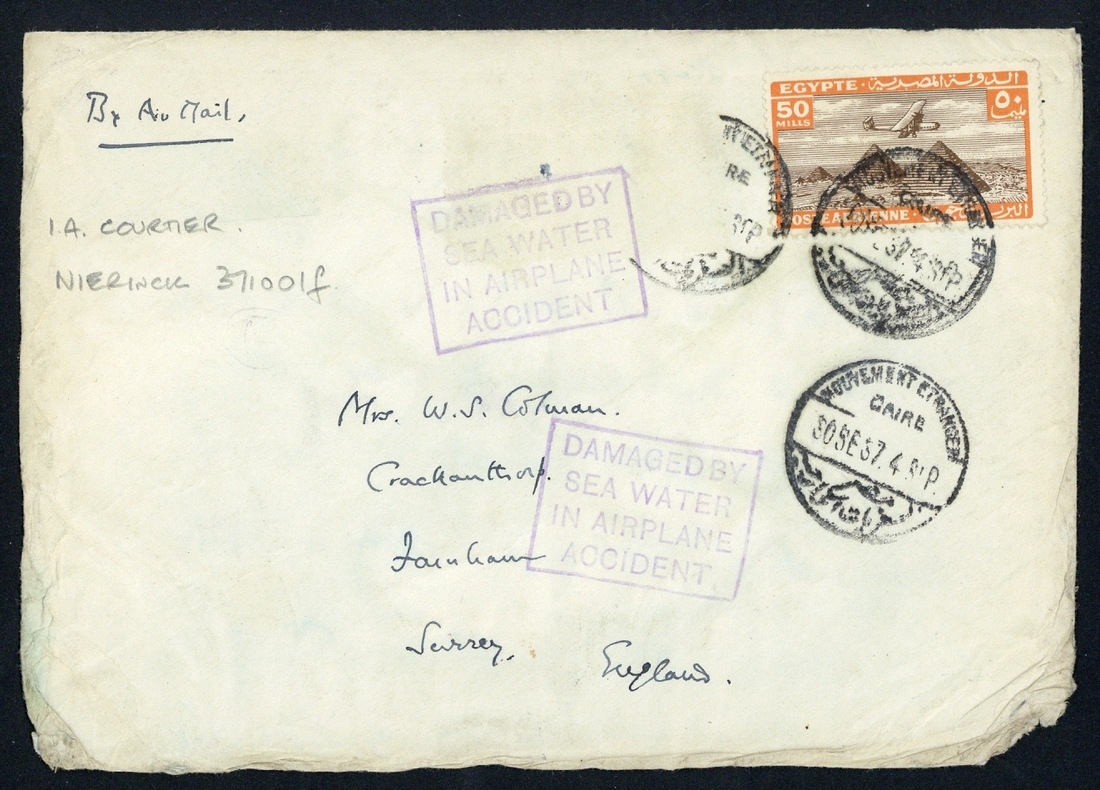 By Air Mail,
I.A. COURTIER.
NIERINCK 371001f
EGYPTE الدولة المصرية
50 MILLS ٥٠ مليما
POSTE AERIENNE البريد
CAIRE
DAMAGED BY
SEA WATER
IN AIRPLANE
ACCIDENT
Mrs. W.S. Colman.
Crackanthorp.
Farnham
Surrey,
England.
DAMAGED BY
SEA WATER
IN AIRPLANE
ACCIDENT
MOUVEMENT ETRANGER
CAIRE
30SE37.4